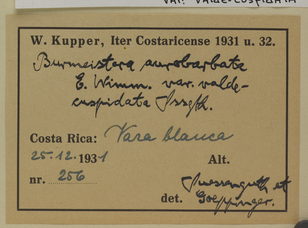 VAR. VALDE-CUSPIDATA
W. Kupper, Iter Costaricense 1931 u. 32.
Burmeistera aurobarbata
E. Wimm. var. valde-
cuspidata Sssgth.
Costa Rica: Vara blanca
25.12.1931 Alt.
nr. 256
Suessenguth et
det. Goeppinger.